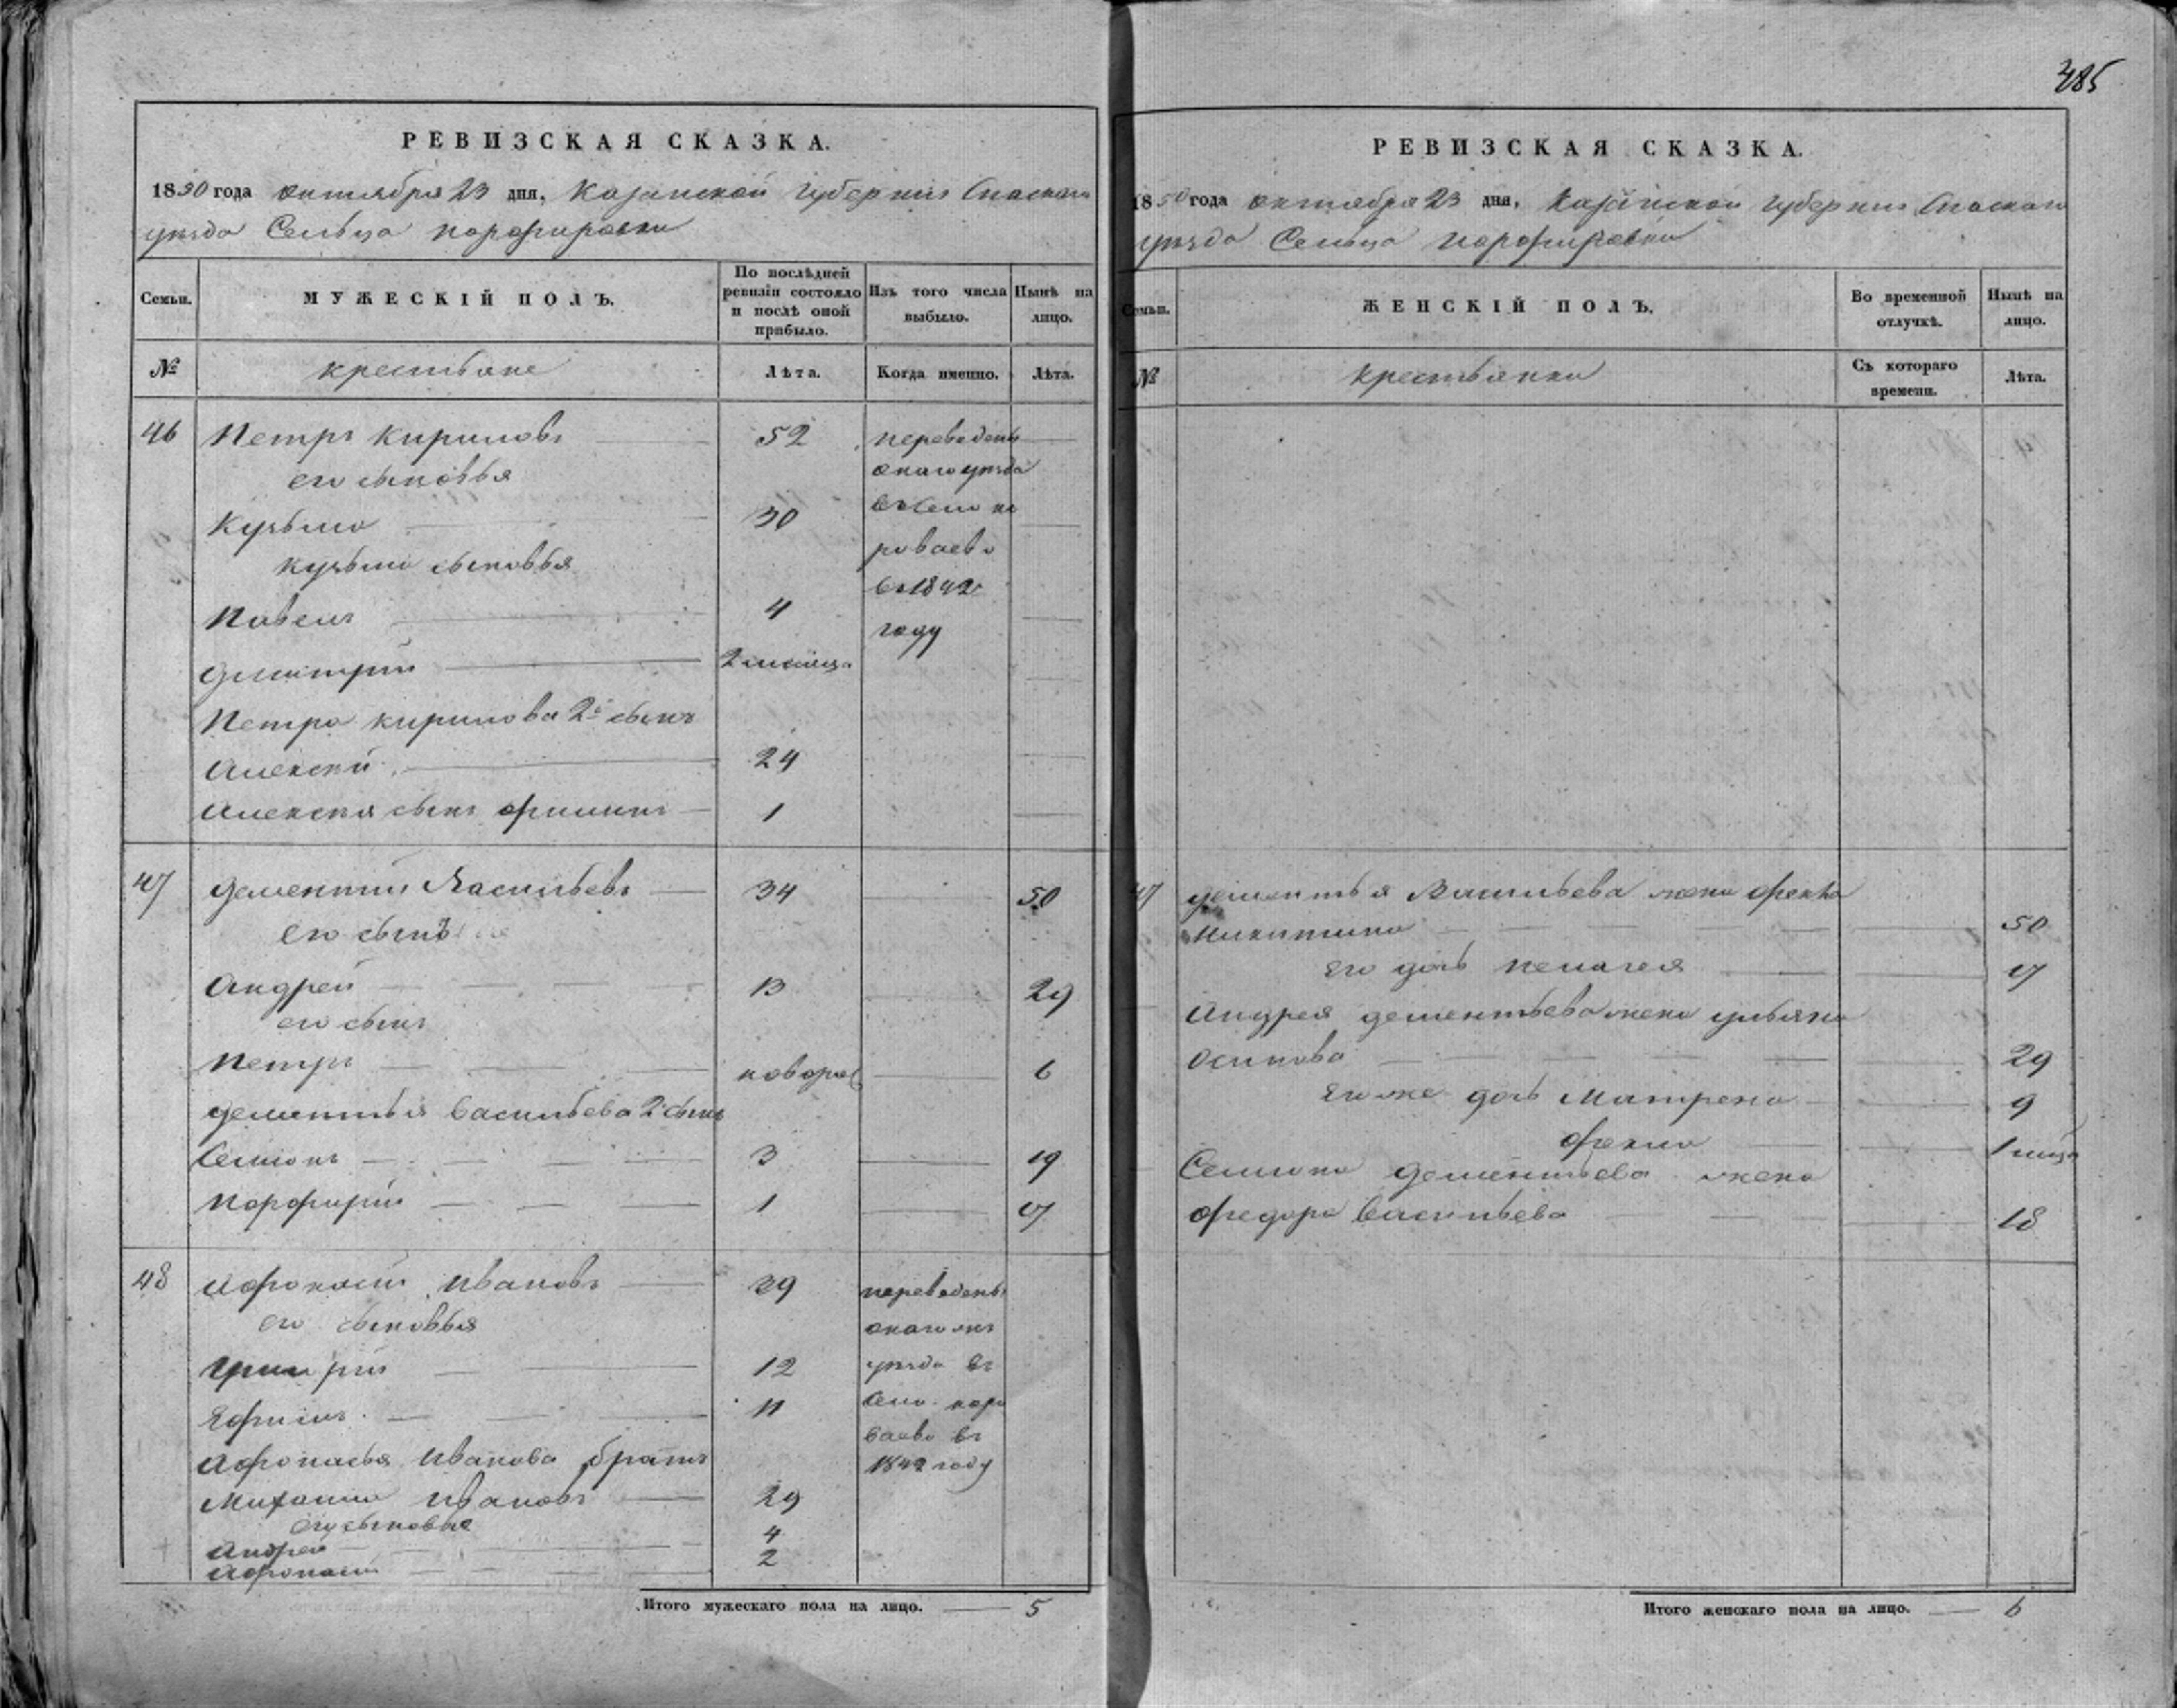 385
РЕВИЗСКАЯ СКАЗКА.
1850 года октября 23 дня, Казанской губернии Спаскаго
уезда Сельца порфировки
Семьи.
МУЖЕСКІЙ ПОЛЪ.
По послѣдней ревизіи состояло и послѣ оной прибыло.
Изъ того числа выбыло.
Нынѣ на лицо.
№
крестьяне
Лѣта.
Когда именно.
Лѣта.
46 Петръ Кириловъ 52 переведены
его сыновья онаго уезда
Кузьма 30 въ село ка
Кузьмы сыновья роваево
Павелъ 4 въ 1842
году
Дмитрий 2 месяца
Петра Кирилова 2й сынъ
Алексей 24
Алексея сынъ Филипъ 1
47 Дементий Васильевъ 34 50
его сынъ
Андрей 13 29
его сынъ
Петръ новорож 6
Дементья Васильева 2 сынъ
Семионъ 3 19
Порфирий 1 17
48 Афонасий Ивановъ 39 переведены
его сыновья онаго жъ
Григорий 12 уезда въ
Ефимъ 11 село каро
ваево въ
Афонасья Иванова братъ 1842 году
Михаило Ивановъ 29
его сыновья
Андрей 4
Афонасий 2
Итого мужескаго пола на лицо. 5
РЕВИЗСКАЯ СКАЗКА.
1850 года октября 23 дня, Казанской губернии Спаскаго
уезда Сельца порфировки
Семьи.
ЖЕНСКІЙ ПОЛЪ.
Во временной отлучкѣ.
Нынѣ на лицо.
№
крестьянки
Съ котораго времени.
Лѣта.
47 Дементья Васильева жена Фекла
Никитина 50
его дочь Пелагея 17
Андрея Дементьева жена Ульяна
Осипова 29
его же дочь Матрена 9
Фекла 1 меца
Семиона Дементьева жена
Федора Васильева 18
Итого женскаго пола на лицо. 6